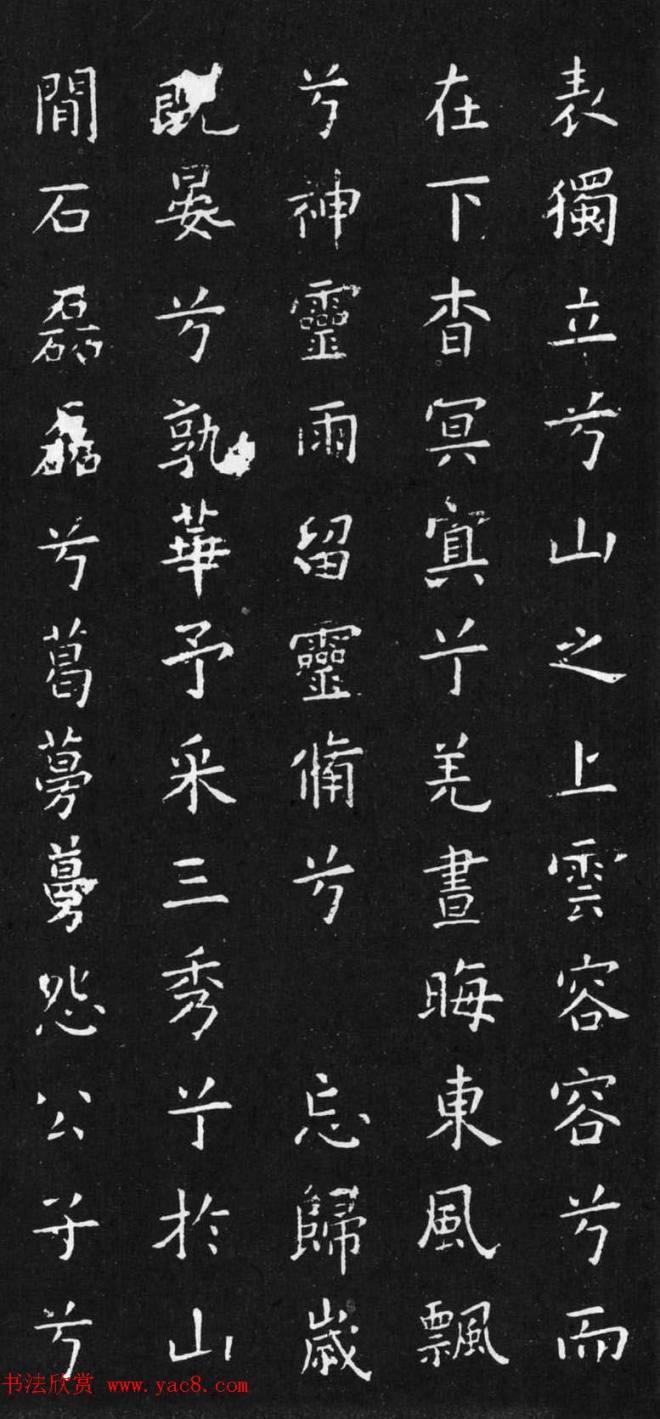 表獨立兮山之上雲容容兮而
在下杳冥冥兮羌晝晦東風飄
兮神靈雨留靈脩兮 忘歸歲
既晏兮孰華予采三秀兮於山
間石磊磊兮葛蔓蔓怨公子兮
书法欣赏 www.yac8.com